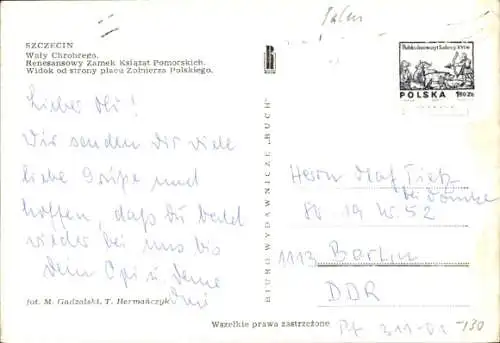 Polen
SZCZECIN
Wały Chrobrego.
Renesansowy Zamek Książąt Pomorskich.
Widok od strony placu Żołnierza Polskiego.
Lieber Oli!
Wir senden dir viele
liebe Grüße und
hoffen, daß du bald
wieder bei uns bis
Dein Opi u. Deine
Omi
fot. M. Gadzalski, T. Hermańczyk
BIURO WYDAWNICZE „RUCH"
POLSKA 1.50 ZŁ
Herrn Olaf Tietz
bei
19 W. 52
1113 Berlin
DDR
Wszelkie prawa zastrzeżone